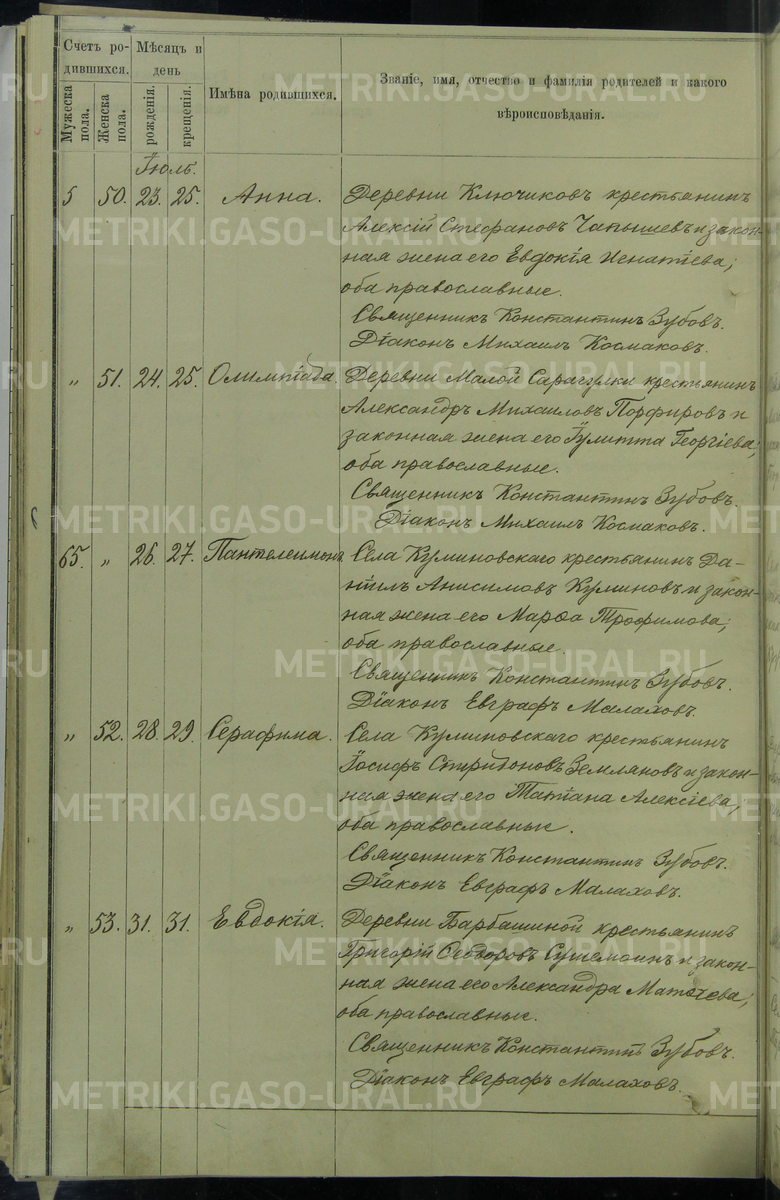 Счетъ ро-
дившихся.
Мѣсяцъ и
день
Имѣна родившихся.
Званіе, имя, отчество и фамилія родителей и какого
вѣроисповѣданія.
Мужеска
пола.
Женска
пола.
рожденія.
крещенія.
Іюль.
5 50. 23. 25. Анна. Деревни Ключиковъ крестьянинъ
Алексій Стефановъ Чапышевъ и закон-
ная жена его Евдокія Игнатіева;
оба православные.
Священникъ Константинъ Зубовъ.
Діаконъ Михаилъ Космаковъ.
„ 51. 24. 25. Олимпіада. Деревни Малой Сарагулки крестьянинъ
Александръ Михаиловъ Порфировъ и
законная жена его Іулитта Георгіева;
оба православные.
Священникъ Константинъ Зубовъ.
Діаконъ Михаилъ Космаковъ.
65. „ 26. 27. Пантелеимонъ. Села Куминовскаго крестьянинъ Да-
ніилъ Анисимовъ Куминовъ и закон-
ная жена его Марѳа Трофимова;
оба православные.
Священникъ Константинъ Зубовъ.
Діаконъ Евграфъ Малаховъ.
„ 52. 28. 29. Серафима. Села Куминовскаго крестьянинъ
Іосифъ Спиридоновъ Земляновъ и закон-
ная жена его Татіана Алексіева;
оба православные.
Священникъ Константинъ Зубовъ.
Діаконъ Евграфъ Малаховъ.
„ 53. 31. 31. Евдокія. Деревни Барбашиной крестьянинъ
Григорій Ѳеодоровъ и закон-
ная жена его Александра Матѳеева;
оба православные.
Священникъ Константинъ Зубовъ.
Діаконъ Евграфъ Малаховъ.
METRIKI.GASO-URAL.RU